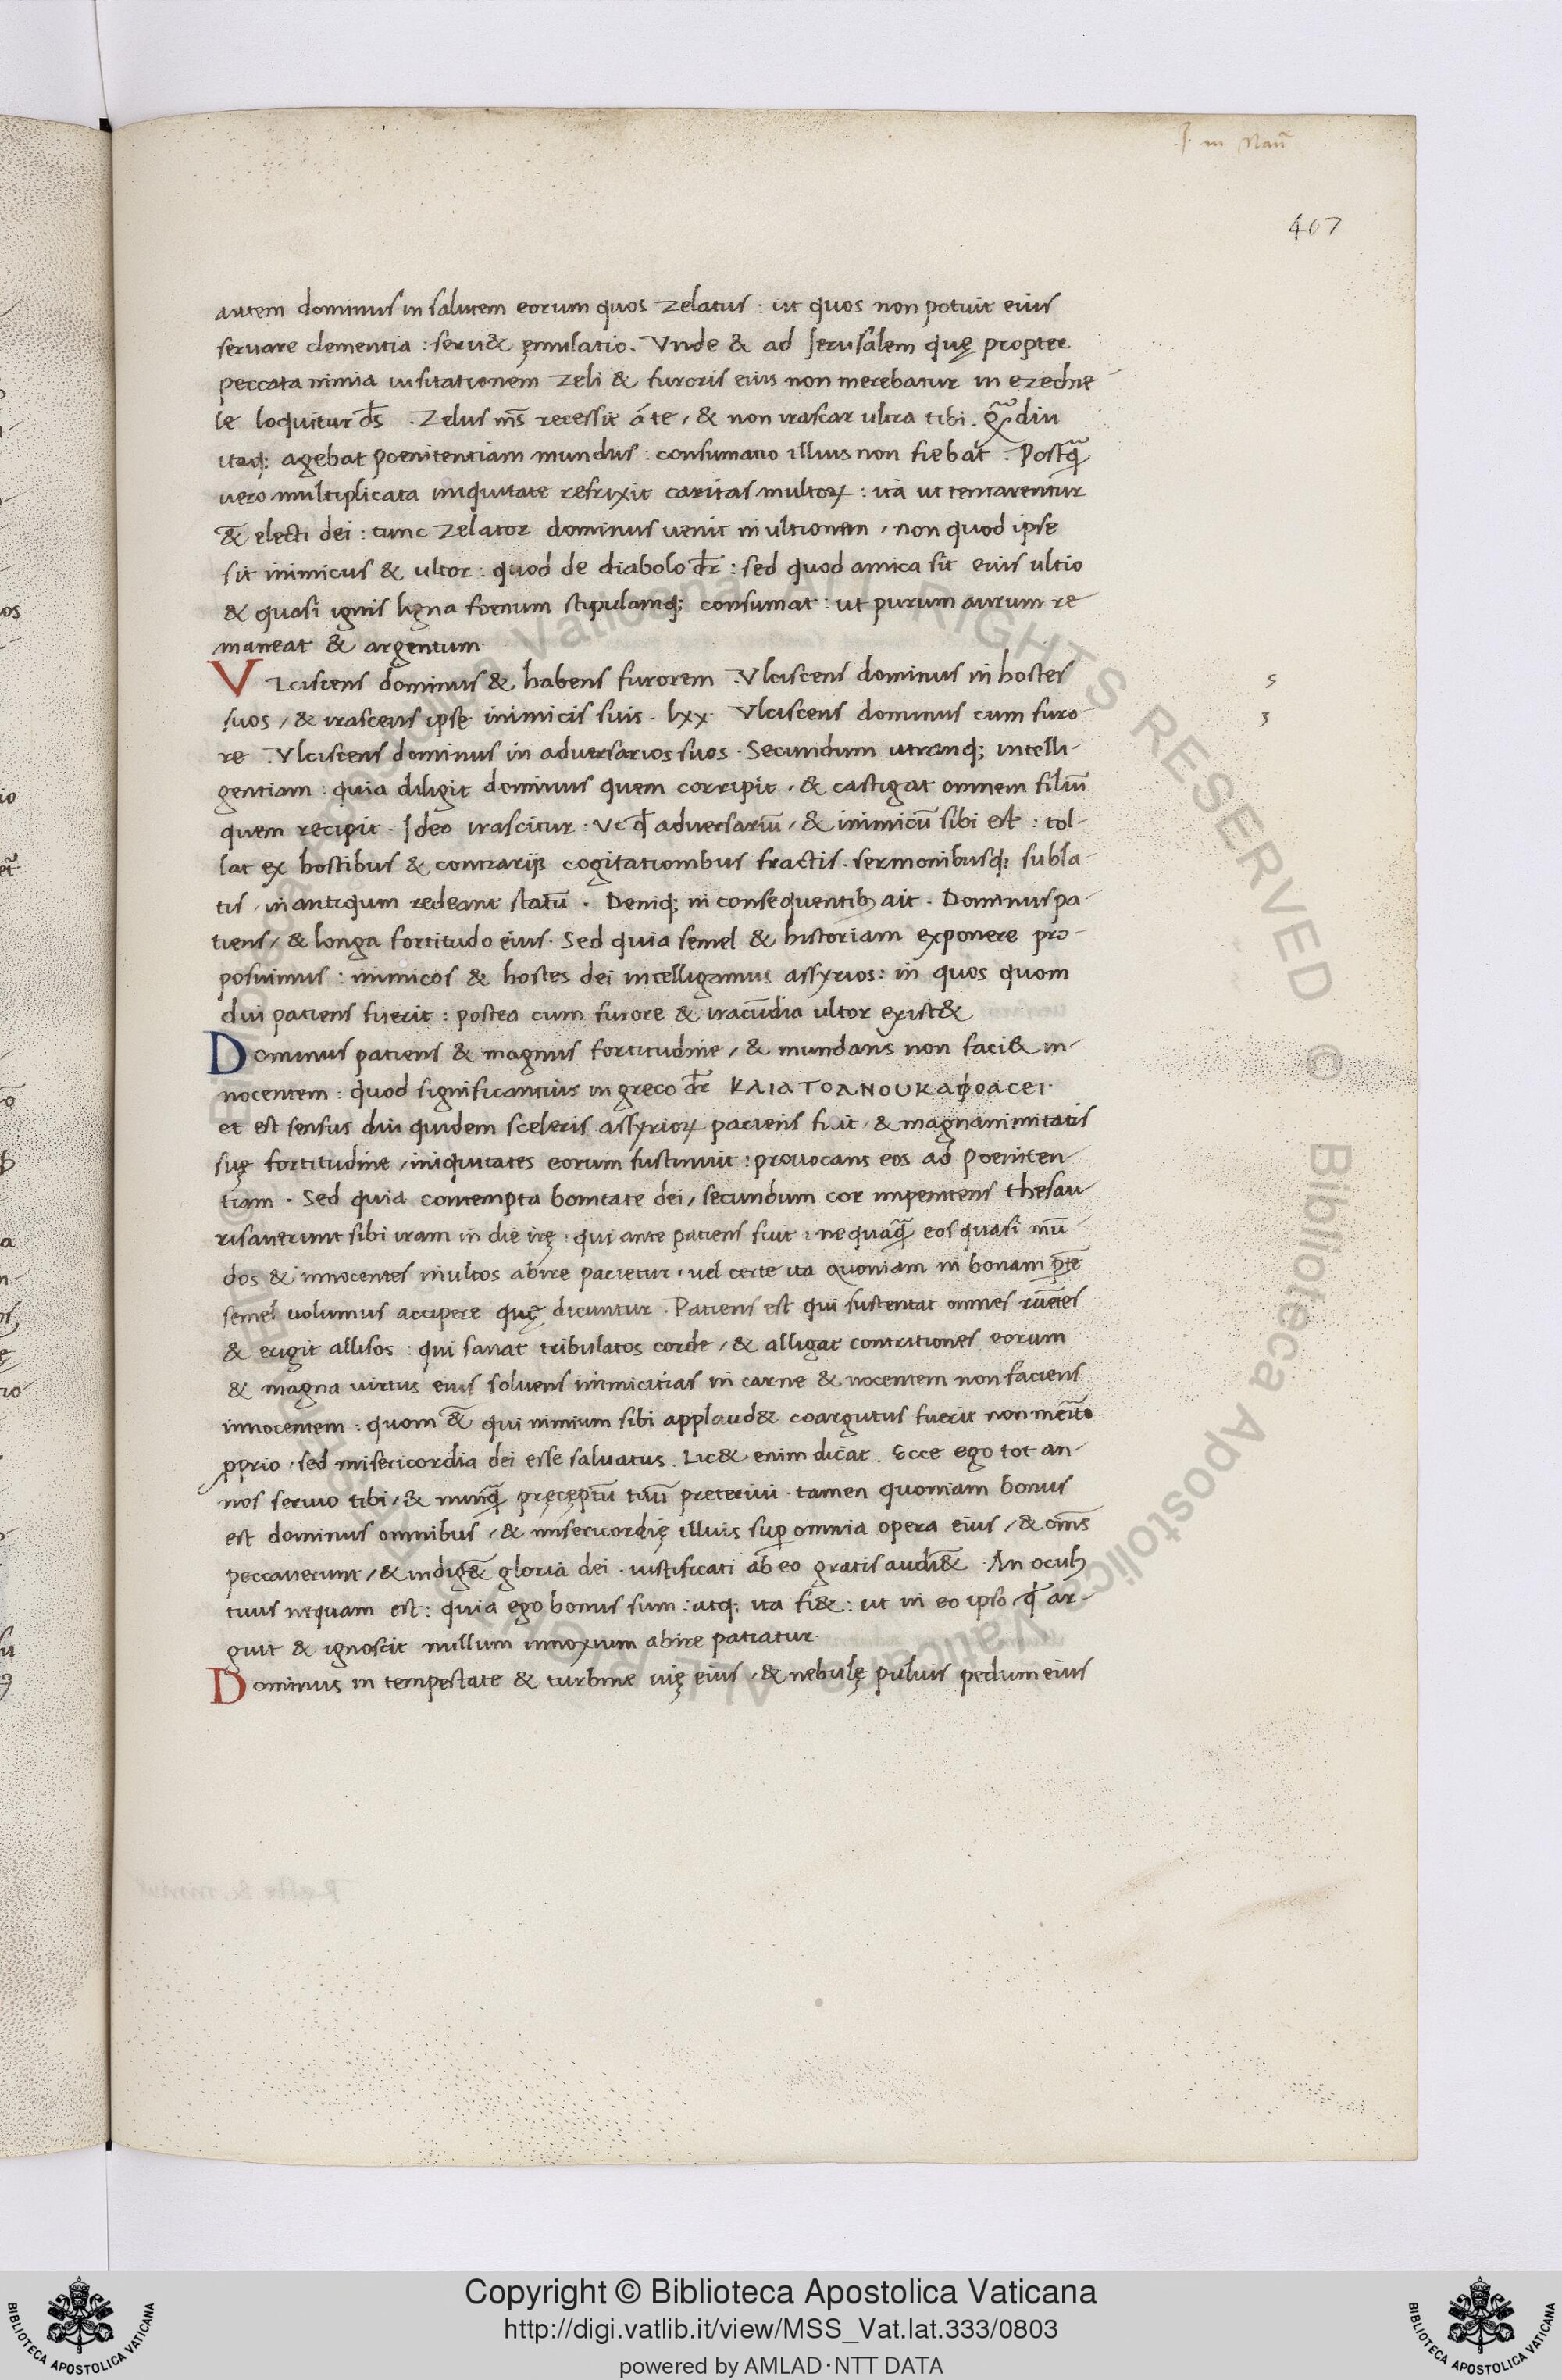 .I. in Naũ
407
autem dominus in salutem eorum quos zelatus : ut quos non potuit eius
seruare clementia : seru& ęmulatio. Vnde & ad Jerusalem quę propter
peccata nimia uisitationem zeli & furoris eius non merebatur in ezechie
le loquitur dr̄s . Zelus ms̄ recessit á te, & non irascar ultra tibi. Qua̅diu
itaq; agebat poenitentiam mundus : consumatio illius non fiebat . Postq̃
uero multiplicata iniquitate refrixit caritas multoꝝ : ita ut tentarentur
&̅ electi dei : tunc zelator dominus uenit in ultionem , non quod ipse
sit inimicus & ultor : quod de diabolo dr̅ : sed quod amica sit eius ultio
& quasi ignis ligna foenum stipulamq; consumat : ut purum aurum re
maneat & argentum
Vlciscens dominus & habens furorem . Vlciscens dominus in hostes
5
suos , & irascens ipse inimicis suis . lxx. Vlciscens dominus cum furo
3
re . Vlciscens dominus in aduersarios suos . Secundum utranq; intelli-
gentiam : quia diligit dominus quem corripit , & castigat omnem filiū
quem recipit . Ideo irascitur : Vt qd̄ aduersariū , & inimicū sibi est : tol-
lat ex hostibus & contrarijs cogitationibus fractis . sermonibusq; subla-
tis , in antiqum redeant statū . Deniq; in consequentibꝫ ait . Dominus pa-
tiens , & longa fortitudo eius . Sed quia semel & historiam exponere pro-
posuimus : inimicos & hostes dei intelligamus assyrios : in quos quom
diu patiens fuerit : postea cum furore & iracūdia ultor exist&
Dominus patiens & magnus fortitudine , & mundans non faci& in-
nocentem : quod significantius in greco dr̅ ΚΛΙΑΤΟΑΝΟΥΚΑΦΟΑCΕΙ.
et est sensus diu quidem sceleris assyrioꝝ patiens fuit , & magnanimitatis
suę fortitudine , iniquitates eorum sustinuit : prouocans eos ad poeniten-
tiam . Sed quia contempta bonitate dei , secundum cor impenitens thesau
risauerunt sibi iram in die irę : qui ante patiens fuit : nequaq̃ eos quasi mū
dos & innocentes inultos abire patietur . uel certe ita quoniam in bonam pt̄e
semel uolumus accipere quę dicuntur . Patiens est qui sustentat omnes ruētes
& erigit allisos : qui sanat tribulatos corde , & alligat contritiones eorum
& magna uirtus eius soluens inimicitias in carne & nocentem non faciens
innocentem : quom &̅ qui nimium sibi applaud& coargutus fuerit non merito
ꝓprio , sed misericordia dei esse saluatus . Lic& enim dicat . Ecce ego tot an-
nos seruio tibi , & nunq̃ pręceptū tuū preteriui . tamen quoniam bonus
est dominus omnibus , & misericordię illius suꝑ omnia opera eius , & om̄s
peccauerunt , & indig&̅ gloria dei . iustificati ab eo gratis audi&̅ . An oculꝫ
tuus nequam est : quia ego bonus sum : atq; ita fi& : ut in eo ipso , qd̄ ar-
guit & ignoscit nullum innoxium abire patiatur.
Dominus in tempestate & turbine uię eius , & nebulę puluis pedum eius
Copyright © Biblioteca Apostolica Vaticana
http://digi.vatlib.it/view/MSS_Vat.lat.333/0803
powered by AMLAD·NTT DATA